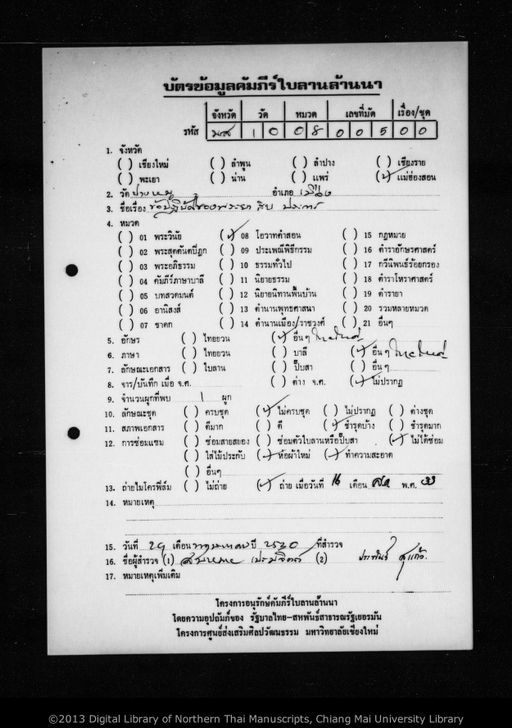 บัตรข้อมูลคัมภีร์ใบลานล้านนา
จังหวัด วัด หมวด เลขที่มัด เรื่อง/ชุด
รหัส มส 1 0 0 8 0 0 5 0 0
1. จังหวัด
( ) เชียงใหม่ ( ) ลำพูน ( ) ลำปาง ( ) เชียงราย
( ) พะเยา ( ) น่าน ( ) แพร่ (✓) แม่ฮ่องสอน
2. วัด อำเภอ เมือง
3. ชื่อเรื่อง
4. หมวด
( ) 01 พระวินัย (✓) 08 โอวาทคำสอน ( ) 15 กฎหมาย
( ) 02 พระสุตตันตปิฎก ( ) 09 ประเพณีพิธีกรรม ( ) 16 ตำราอักษรศาสตร์
( ) 03 พระอภิธรรม ( ) 10 ธรรมทั่วไป ( ) 17 กวีนิพนธ์ร้อยกรอง
( ) 04 คัมภีร์ภาษาบาลี ( ) 11 นิยายธรรม ( ) 18 ตำราโหราศาสตร์
( ) 05 บทสวดมนต์ ( ) 12 นิยายนิทานพื้นบ้าน ( ) 19 ตำรายา
( ) 06 อานิสงส์ ( ) 13 ตำนานพุทธศาสนา ( ) 20 รวมหลายหมวด
( ) 07 ชาดก ( ) 14 ตำนานเมือง/ราชวงศ์ ( ) 21 อื่นๆ
5. อักษร ( ) ไทยยวน (✓) อื่นๆ ไทยใหญ่
6. ภาษา ( ) ไทยยวน ( ) บาลี (✓) อื่นๆ ไทยใหญ่
7. ลักษณะเอกสาร ( ) ใบลาน ( ) ปั๊บสา ( ) อื่นๆ
8. จาร/บันทึก เมื่อ จ.ศ. ( ) ต่าง จ.ศ. (✓) ไม่ปรากฏ
9. จำนวนผูกที่พบ 1 ผูก
10. ลักษณะชุด ( ) ครบชุด (✓) ไม่ครบชุด ( ) ไม่ปรากฏ ( ) ต่างชุด
11. สภาพเอกสาร ( ) ดีมาก ( ) ดี (✓) ชำรุดบ้าง ( ) ชำรุดมาก
12. การซ่อมแซม ( ) ซ่อมสายสยอง ( ) ซ่อมตัวใบลานหรือปั๊บสา (✓) ไม่ได้ซ่อม
( ) ใส่ไม้ประกับ (✓) ห่อผ้าใหม่ (✓) ทำความสะอาด
( ) อื่นๆ
13. ถ่ายไมโครฟิล์ม ( ) ไม่ถ่าย (✓) ถ่าย เมื่อวันที่ 16 เดือน พ.ศ. 33
14. หมายเหตุ
15. วันที่ 29 เดือน พฤษภาคม ปี 2530 ที่สำรวจ
16. ชื่อผู้สำรวจ (1) (2)
17. หมายเหตุเพิ่มเติม
โครงการอนุรักษ์คัมภีร์ใบลานล้านนา
โดยความอุปถัมภ์ของ รัฐบาลไทย-สหพันธ์สาธารณรัฐเยอรมัน
โครงการศูนย์ส่งเสริมศิลปวัฒนธรรม มหาวิทยาลัยเชียงใหม่
©2013 Digital Library of Northern Thai Manuscripts, Chiang Mai University Library